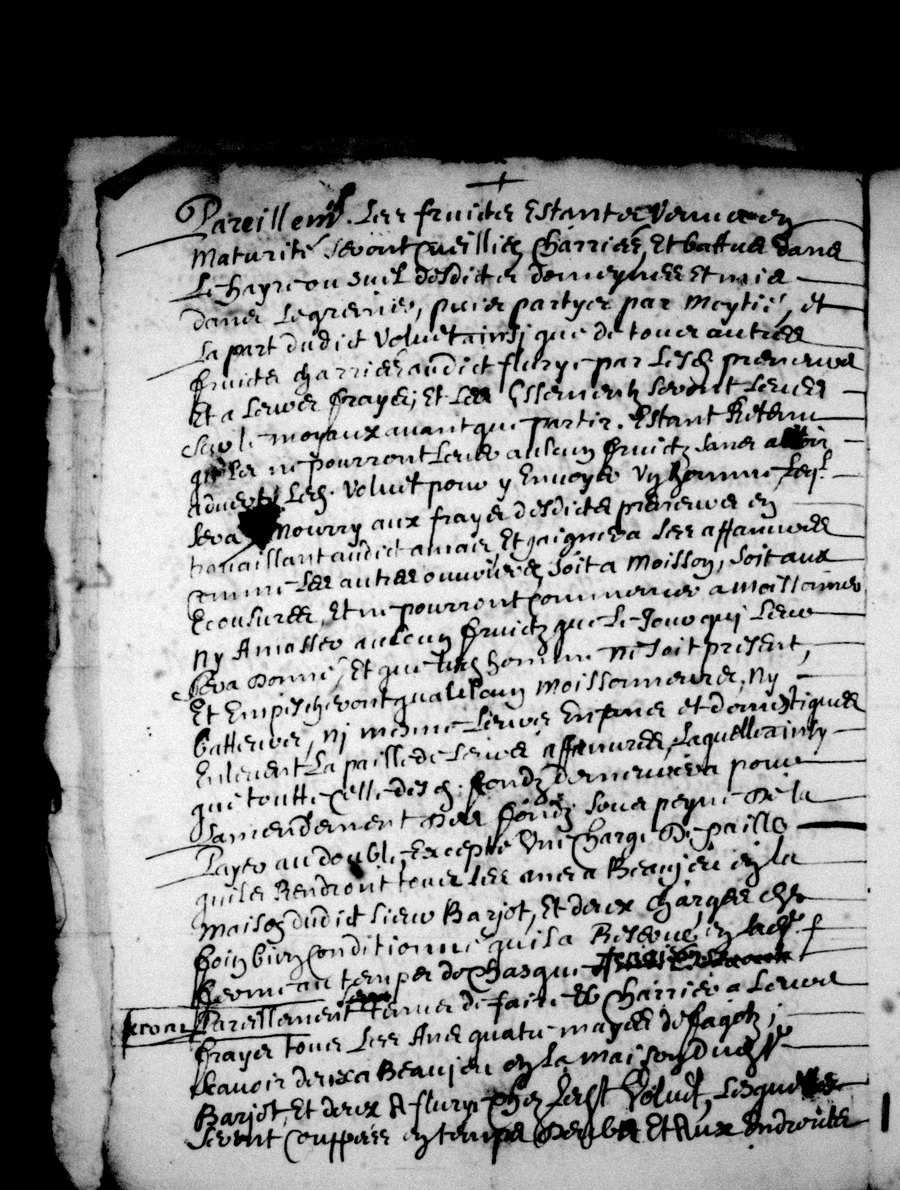 +
Pareillemt. Les fruictz Estantz venus en
Maturité seront Cueillies Charriés, Et battus dans
Le hayre ou suel desdictz domeynes Et mis
dans Le grenier, puis partyes par Moytié, et
La part dudict Voluet ainsi que de tous autres
fruictz charriés audict flurye par Lesd preneurs
Et a Leurs frayes; Et Les Essementz seront Leues
sur le moyaux auant que partir. Estant Retenu
quiles ne pourront Leuer aulcun fruictz sans
aduertir Led. Voluet pour y Enuoyer Vn homme Leql.
sera Nourry aux frayes desdictz preneurs en
trauaillant audict amas, Et gaignera Les affanures
comme Les autres ouuriers, soit a Moisson, soit aux
Ecousures, Et ne pourront Commencer a moissonner
Ny Amasser aulcun fruictz que Le Jour qui Leur
sera donné, Et que led. homme ne soit present,
Et Empescheront qualcun moissonneurs, Ny
batteurs, ni mesme Leurs Enfans et domestiques
Enleuent La paille de Leurs affanures, Laquelle ainsy
que toutte Celle desd. fondz demeurera pour
Lamendement des fondz sous peyne de la
Payer au double, Excepté Vne Charge De paille
quiles Rendront tous Les ans a Beaujeu en la
maison dudict Sieur Barjot, Et deux charges de
foin bien Conditionné qui La Reserue en lade.
ferme au temps de Chasque
Pareillement seront tenus de faire Et Charrier a Leurs
frayes tous Les Ans quatre mayes de fagotz,
scauoir deux a Beaujeu en La maison dudt Sr
Barjot, Et deux A flurye chez Ledt Voluet, Lesquelles
seront Couppées en temps deube Et Aux Endroictz